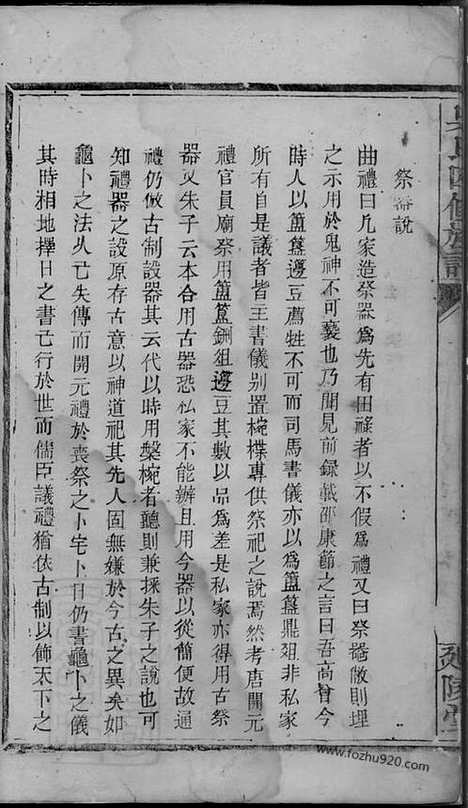 祭器說
曲禮曰凡家造祭器爲先有田祿者以不假爲禮又曰祭器敝則埋
之示用於鬼神不可褻也乃聞見前錄載邵康節之言曰吾高曾今
時人以簠簋籩豆薦牲不可而司馬書儀亦以爲簠簋鼎俎非私家
所有自是議者皆主書儀别置椀楪專供祭祀之說焉然考唐開元
禮官員廟祭用簠簋鉶俎籩豆其數以品爲差是私家亦得用古祭
器又朱子云本合用古器恐私家不能辦且用今器以從簡便故通
禮仍倣古制設器其云代以時用槃椀者聽則兼採朱子之說也可
知禮器之設原存古意以神道祀其先人固無嫌於今古之異矣如
龜卜之法久亡失傳而開元禮於喪祭之卜宅卜日仍書龜卜之儀
其時相地擇日之書亡行於世而儒臣議禮猶依古制以飾天下之
吳氏四修族譜
延陵堂
www.fozhu920.com